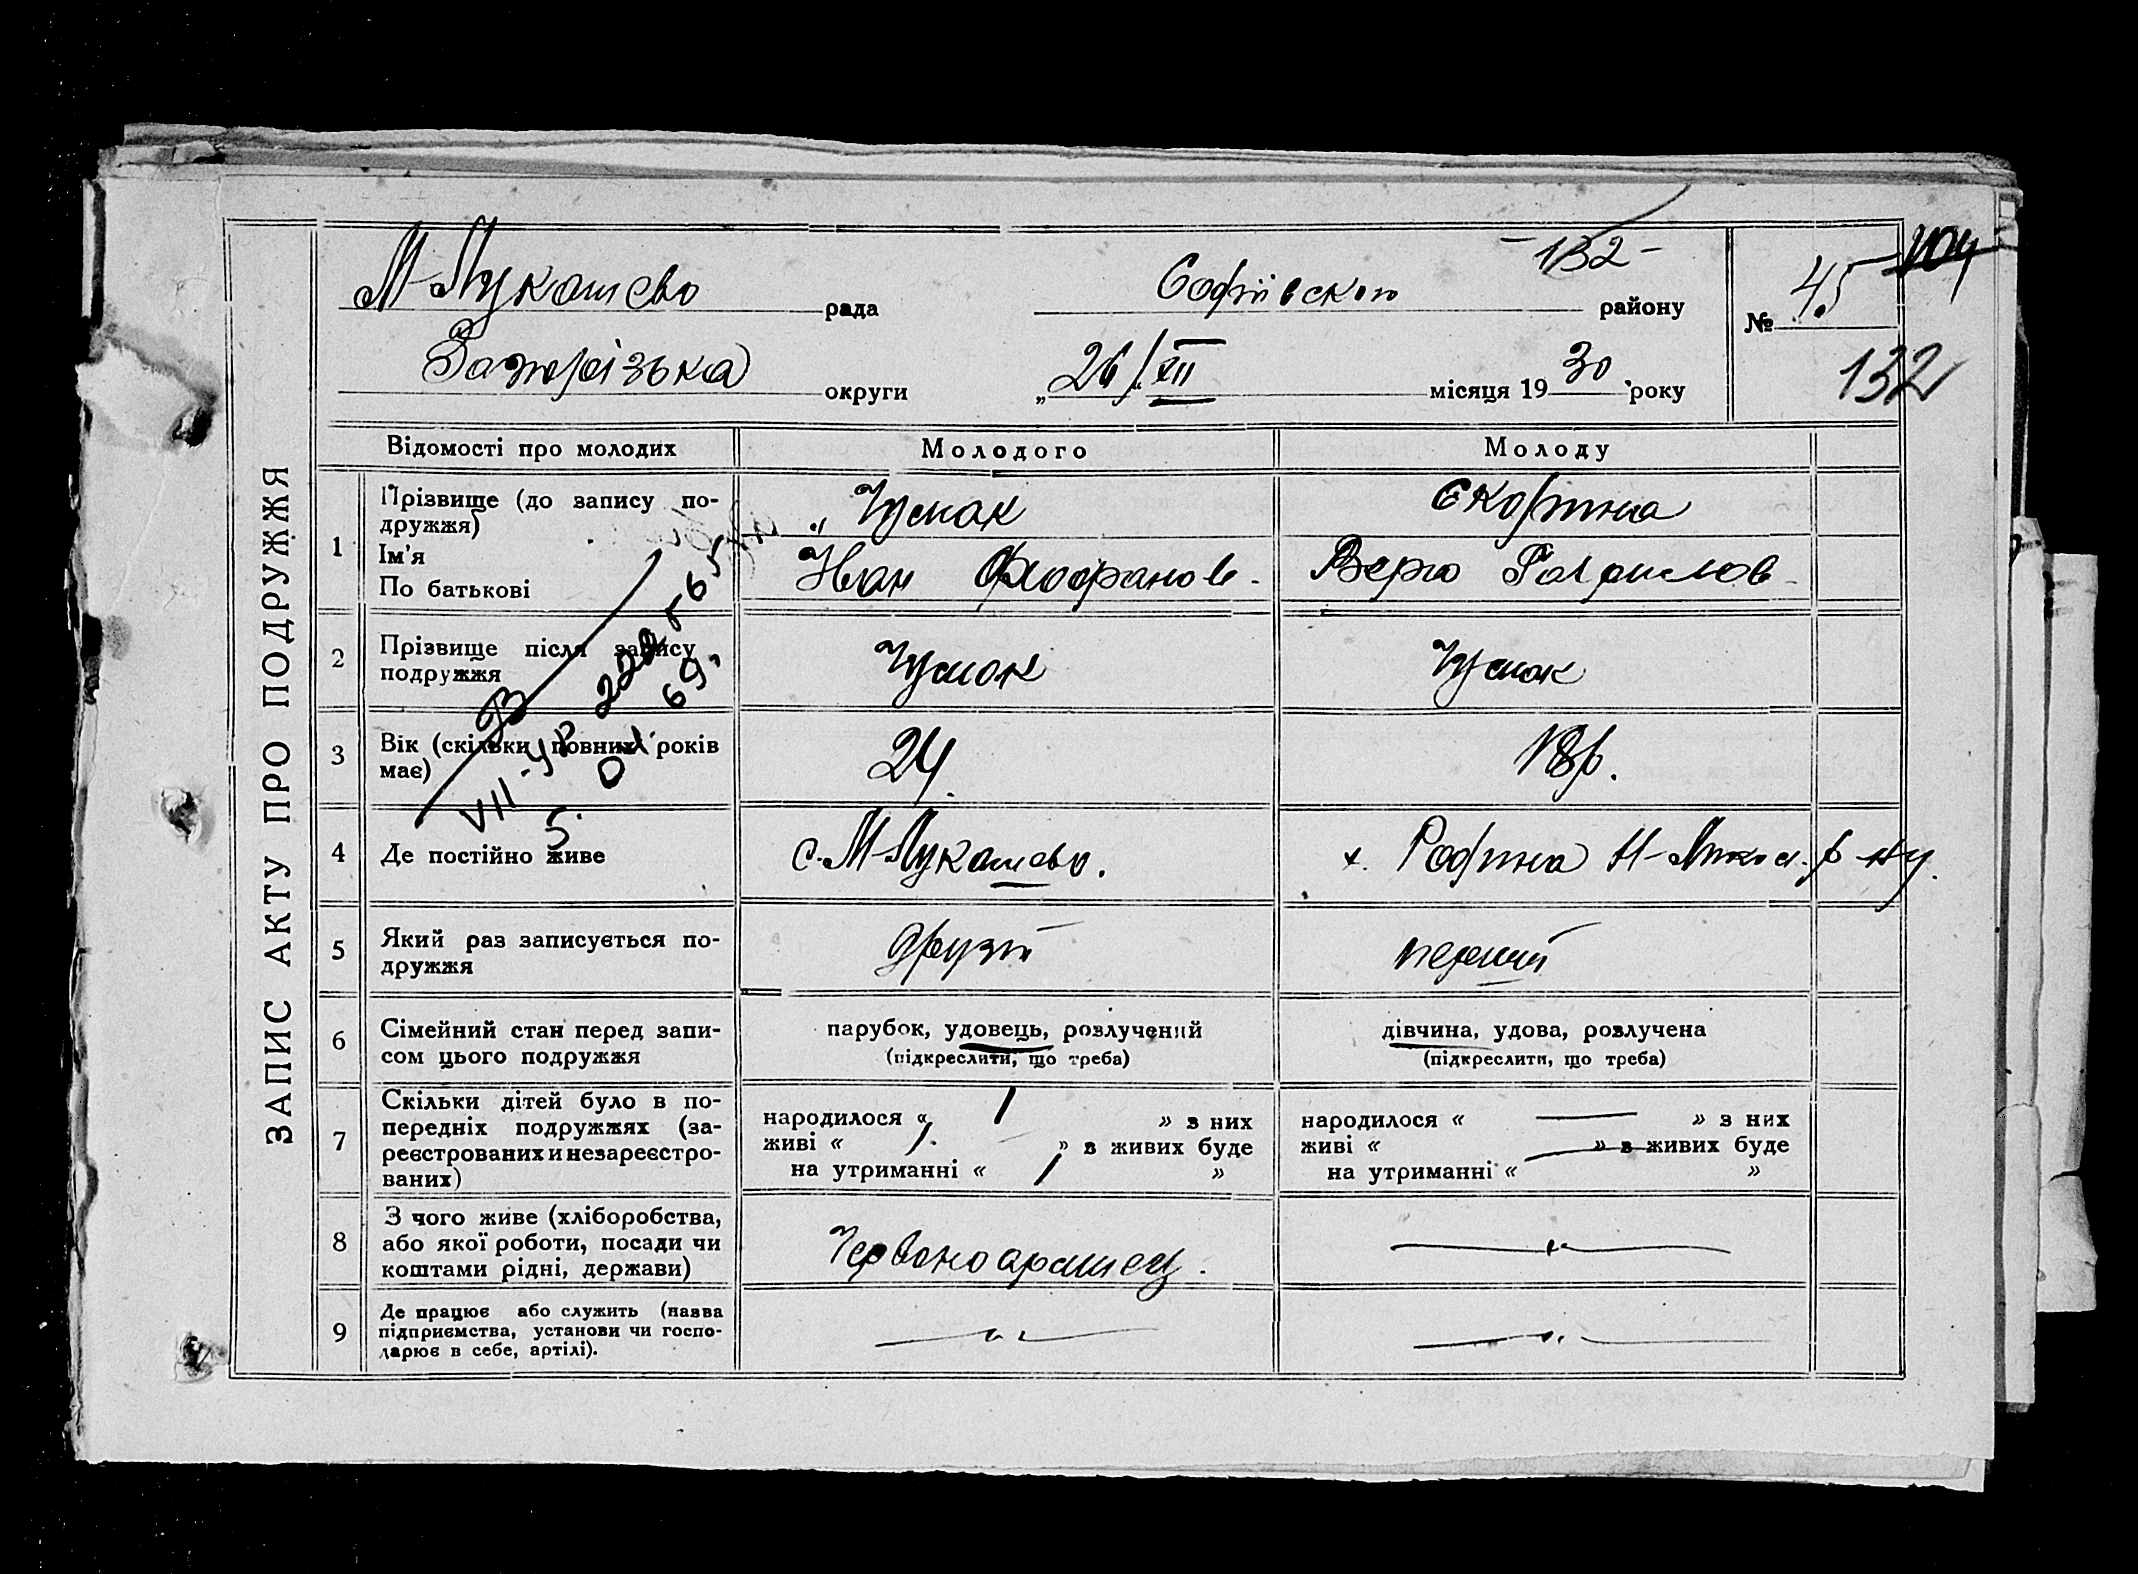 ЗАПИС АКТУ ПРО ПОДРУЖЖЯ
-132-
М-Лукашево рада Софиівского району
№ 45
Запорізька округи „26/XII місяця 1930 року
132
Відомості про молодих Молодого Молоду
1 Прізвище (до запису по-
дружжя)
Ім'я
По батькові
Чумак
Иван
Вера
2 Прізвище після запису
подружжя
Чумак Чумак
3 Вік (скільки повних років
має)
24 18 р.
VII-УР 222565
5. 04. 69.
4 Де постійно живе
с. М-Лукашево. х.
5 Який раз записується по-
дружжя
другий перший
6 Сімейний стан перед запи-
сом цього подружжя
парубок, удовець, розлучений
(підкреслити, що треба)
дівчина, удова, розлучена
(підкреслити, що треба)
7 Скільки дітей було в по-
передніх подружжях (за-
реєстрованих и незареєстро-
ваних)
народилося « 1 » з них
живі « 1 » в живих буде
на утриманні « 1 »
народилося « — » з них
живі « — » в живих буде
на утриманні « »
8 З чого живе (хліборобства,
або якої роботи, посади чи
коштами рідні, держави)
Червоноармиец.
9 Де працює або служить (назва
підприємства, установи чи госпо-
дарює в себе, артілі).